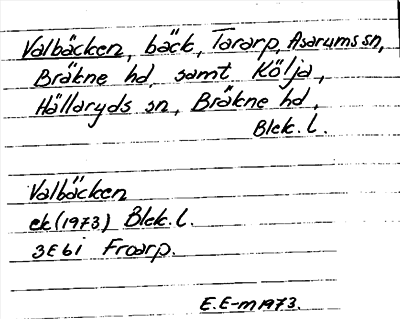 Valbäcken, bäck, Tararp, Asarums sn,
Bräkne hd, samt Kölja,
Hällaryds sn, Bräkne hd,
Blek. l.
Valbäcken
ek (1973) Blek. l.
3E6i Froarp.
E.E-m 1973.